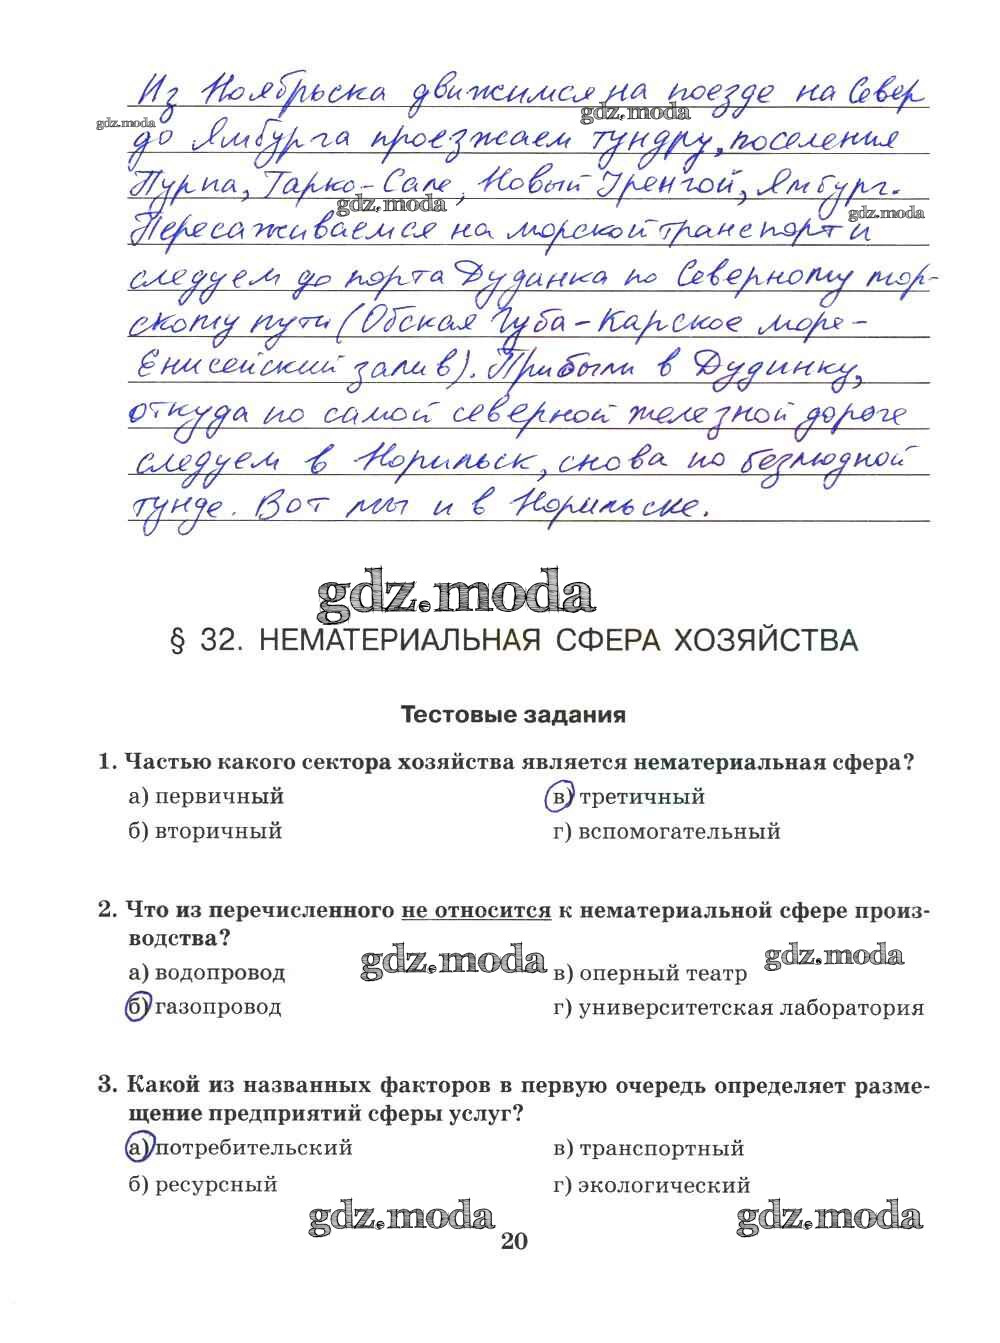 Из Ноябрьска движимся на поезде на Север
gdz.moda
gdz.moda
до Ямбурга проезжаем тундру, поселения
Пурпа, Тарко-Сале, Новый Уренгой, Ямбург.
gdz.moda
gdz.moda
Пересаживаемся на морской транспорт и
следуем до порта Дудинка по Северному мор-
скому пути (Обская Губа-Карское море-
Енисейский залив). Прибыли в Дудинку,
откуда по самой северной железной дороге
следуем в Норильск, снова по безлюдной
тунде. Вот мы и в Норильске.
gdz.moda
§ 32. НЕМАТЕРИАЛЬНАЯ СФЕРА ХОЗЯЙСТВА
Тестовые задания
1. Частью какого сектора хозяйства является нематериальная сфера?
а) первичный
в) третичный
б) вторичный
г) вспомогательный
2. Что из перечисленного не относится к нематериальной сфере произ-
водства?
gdz.moda
gdz.moda
а) водопровод
в) оперный театр
б) газопровод
г) университетская лаборатория
3. Какой из названных факторов в первую очередь определяет разме-
щение предприятий сферы услуг?
а) потребительский
в) транспортный
б) ресурсный
г) экологический
gdz.moda
gdz.moda
20